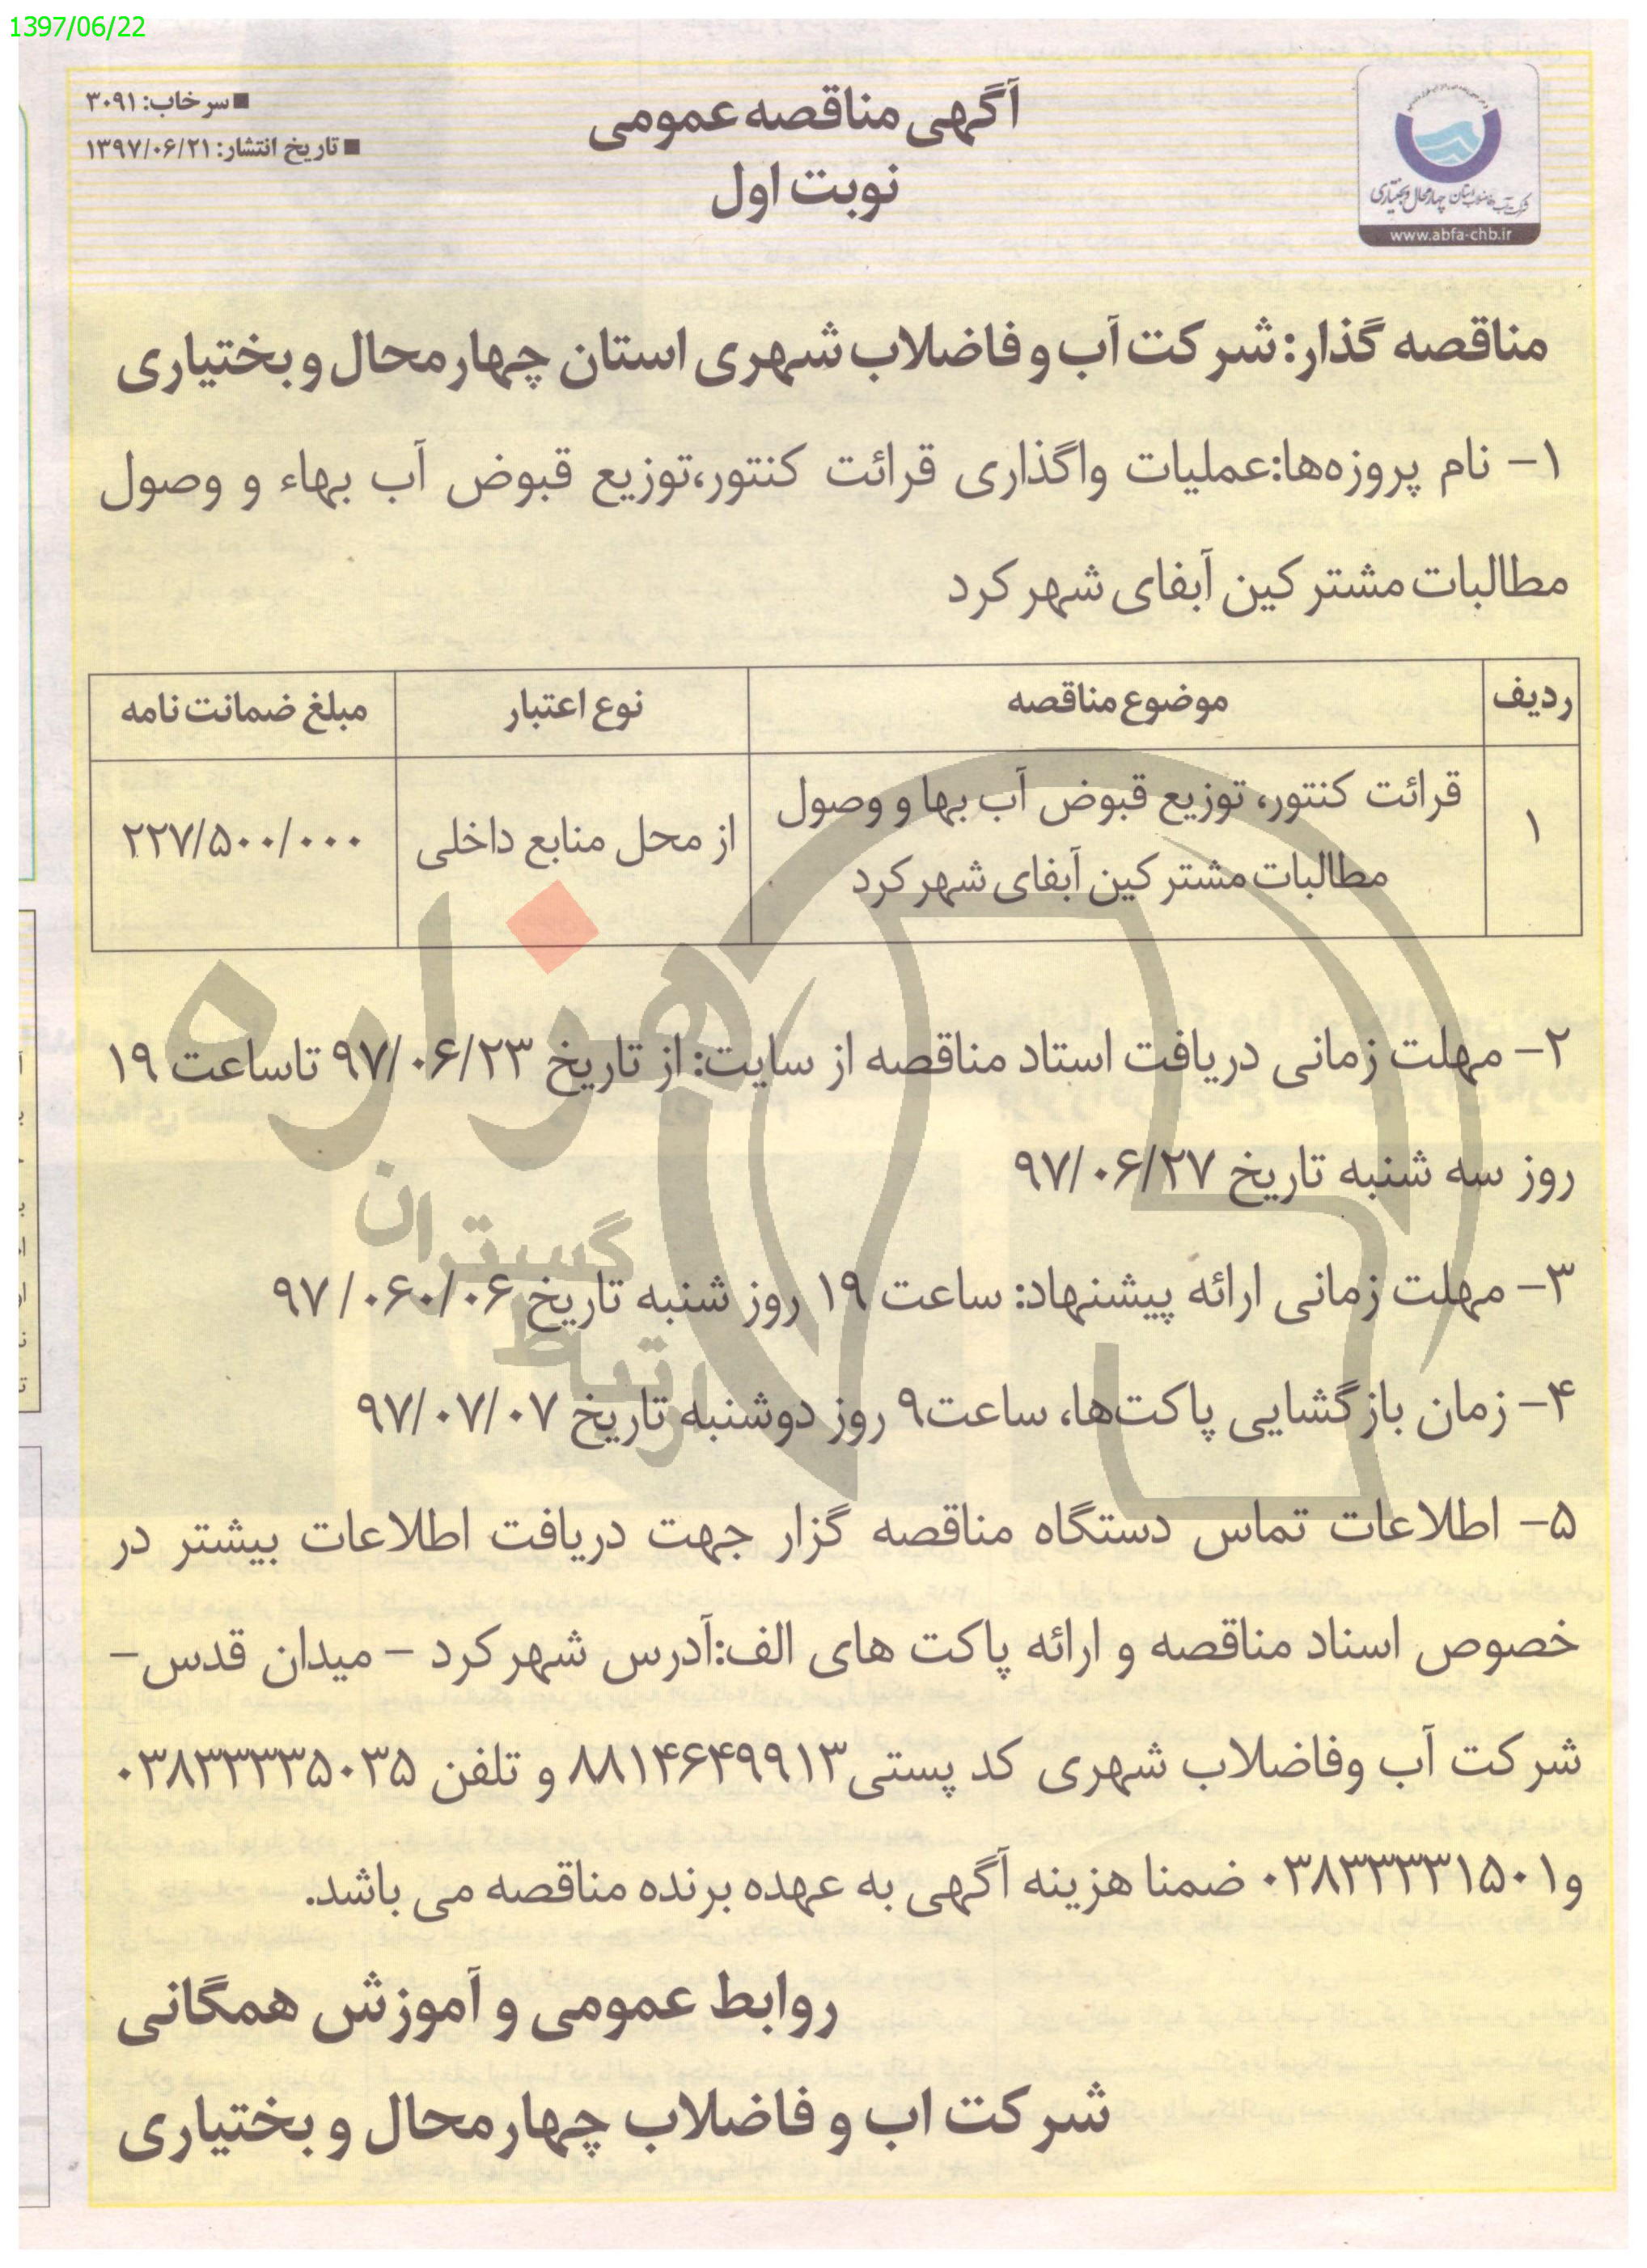 1397/06/22
آگهی مناقصه عمومی
نوبت اول
■ سرخاب: ۳۰۹۱
■ تاریخ انتشار: ۱۳۹۷/۰۶/۲۱
شرکت آب و فاضلاب استان چهارمحال و بختیاری
www.abfa-chb.ir
مناقصه گذار: شرکت آب و فاضلاب شهری استان چهارمحال و بختیاری
۱- نام پروزه‌ها:عملیات واگذاری قرائت کنتور،توزیع قبوض آب بهاء و وصول
مطالبات مشترکین آبفای شهرکرد
ردیف موضوع مناقصه نوع اعتبار مبلغ ضمانت نامه
۱ قرائت کنتور، توزیع قبوض آب بها و وصول
مطالبات مشترکین آبفای شهرکرد
از محل منابع داخلی ۲۲۷/۵۰۰/۰۰۰
۲- مهلت زمانی دریافت استاد مناقصه از سایت: از تاریخ ۹۷/۰۶/۲۳ تاساعت ۱۹
روز سه شنبه تاریخ ۹۷/۰۶/۲۷
۳- مهلت زمانی ارائه پیشنهاد: ساعت ۱۹ روز شنبه تاریخ ۹۷/۰۶۰/۰۶
۴- زمان بازگشایی پاکت‌ها، ساعت۹ روز دوشنبه تاریخ ۹۷/۰۷/۰۷
۵- اطلاعات تماس دستگاه مناقصه گزار جهت دریافت اطلاعات بیشتر در
خصوص اسناد مناقصه و ارائه پاکت های الف:آدرس شهرکرد - میدان قدس-
شرکت آب وفاضلاب شهری کد پستی۸۸۱۴۶۴۹۹۱۳ و تلفن ۰۳۸۳۳۳۳۵۰۳۵
و۰۳۸۳۳۳۳۱۵۰۱ ضمنا هزینه آگهی به عهده برنده مناقصه می باشد.
روابط عمومی و آموزش همگانی
شرکت اب و فاضلاب چهارمحال و بختیاری
هزاره
گستران
ارتباط